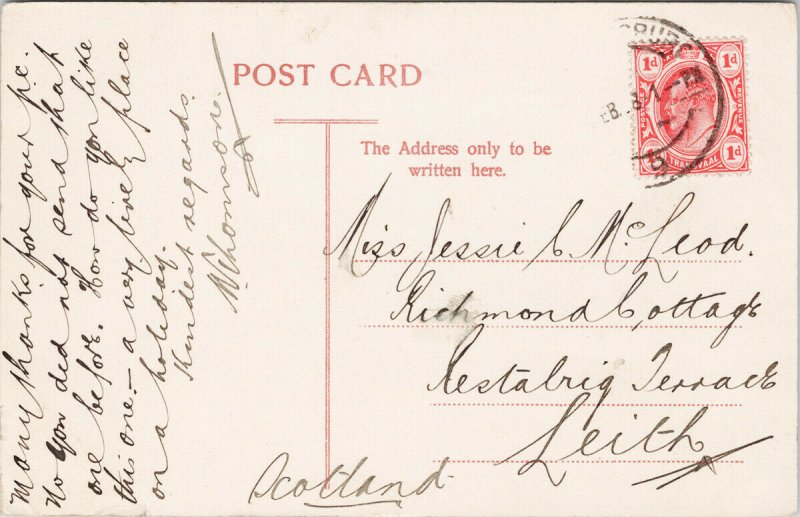 Many thanks for your p.c.
No you did not send that
one before. How do you like
this one. — a very lively place
on a holiday.
Kindest regards.
W Thomson.
POST CARD
The Address only to be
written here.
Miss Jessie C McLeod.
Richmond Cottage
Restalrig Terrace
Leith
Scotland
1d 1d
TRANSVAAL
1d 1d